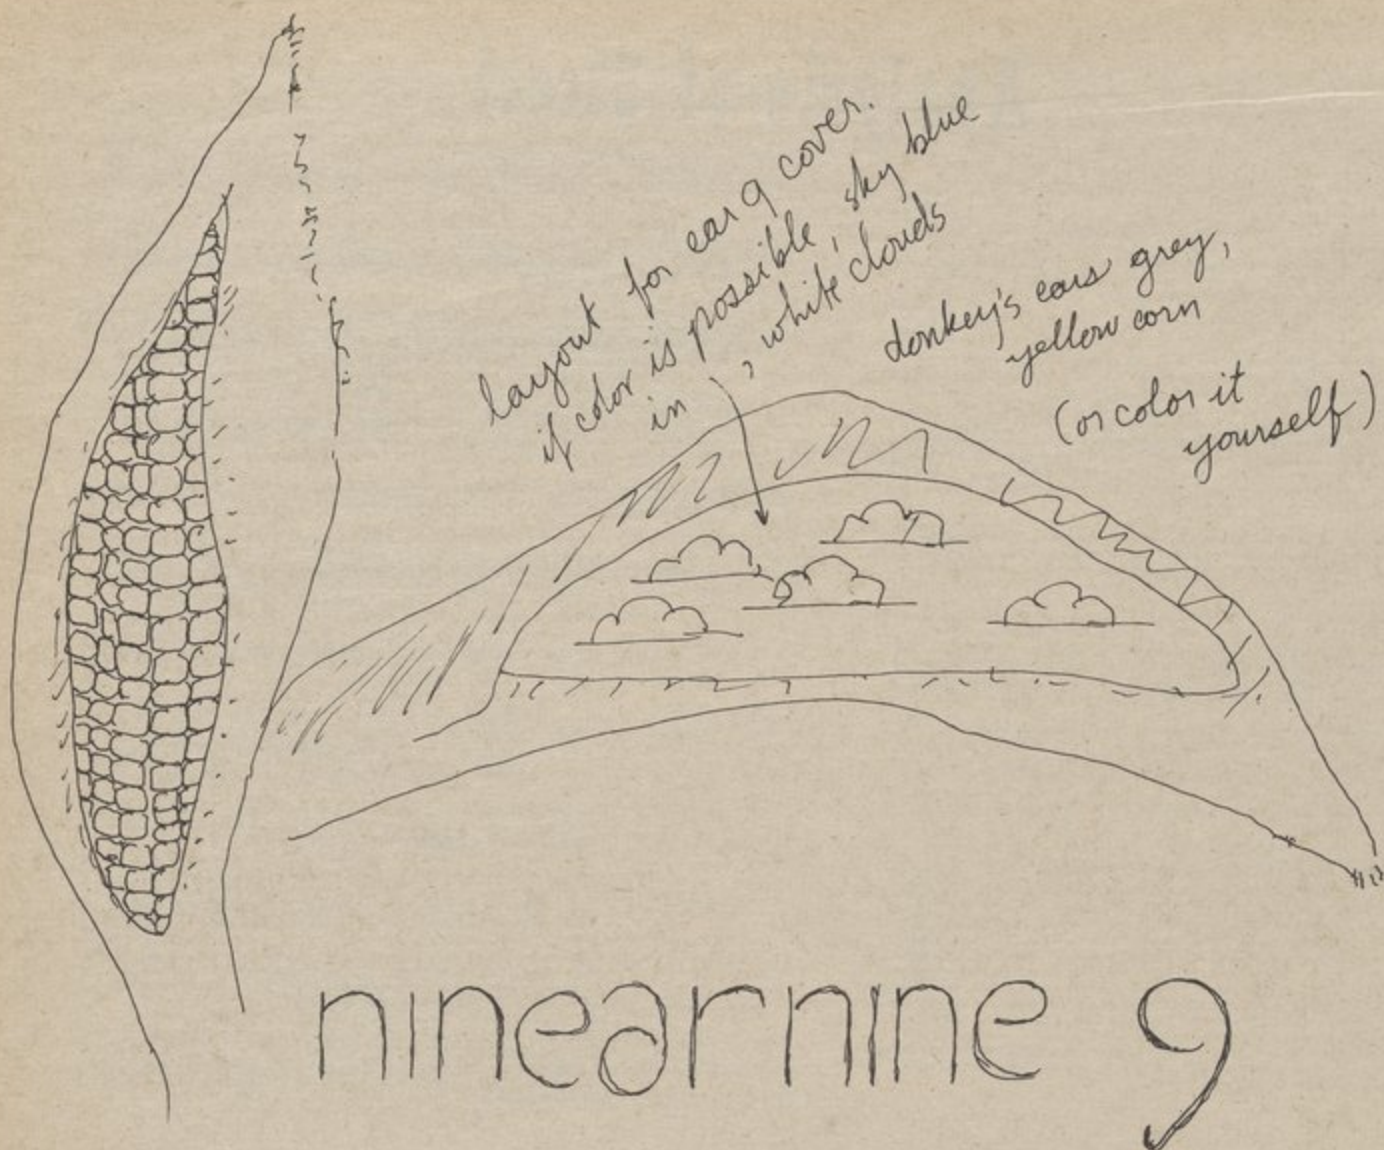 layout for ear 9 cover.
if color is possible, sky blue
in, white clouds
donkey's ears grey,
yellow corn
(or color it
yourself)
ninearnine 9